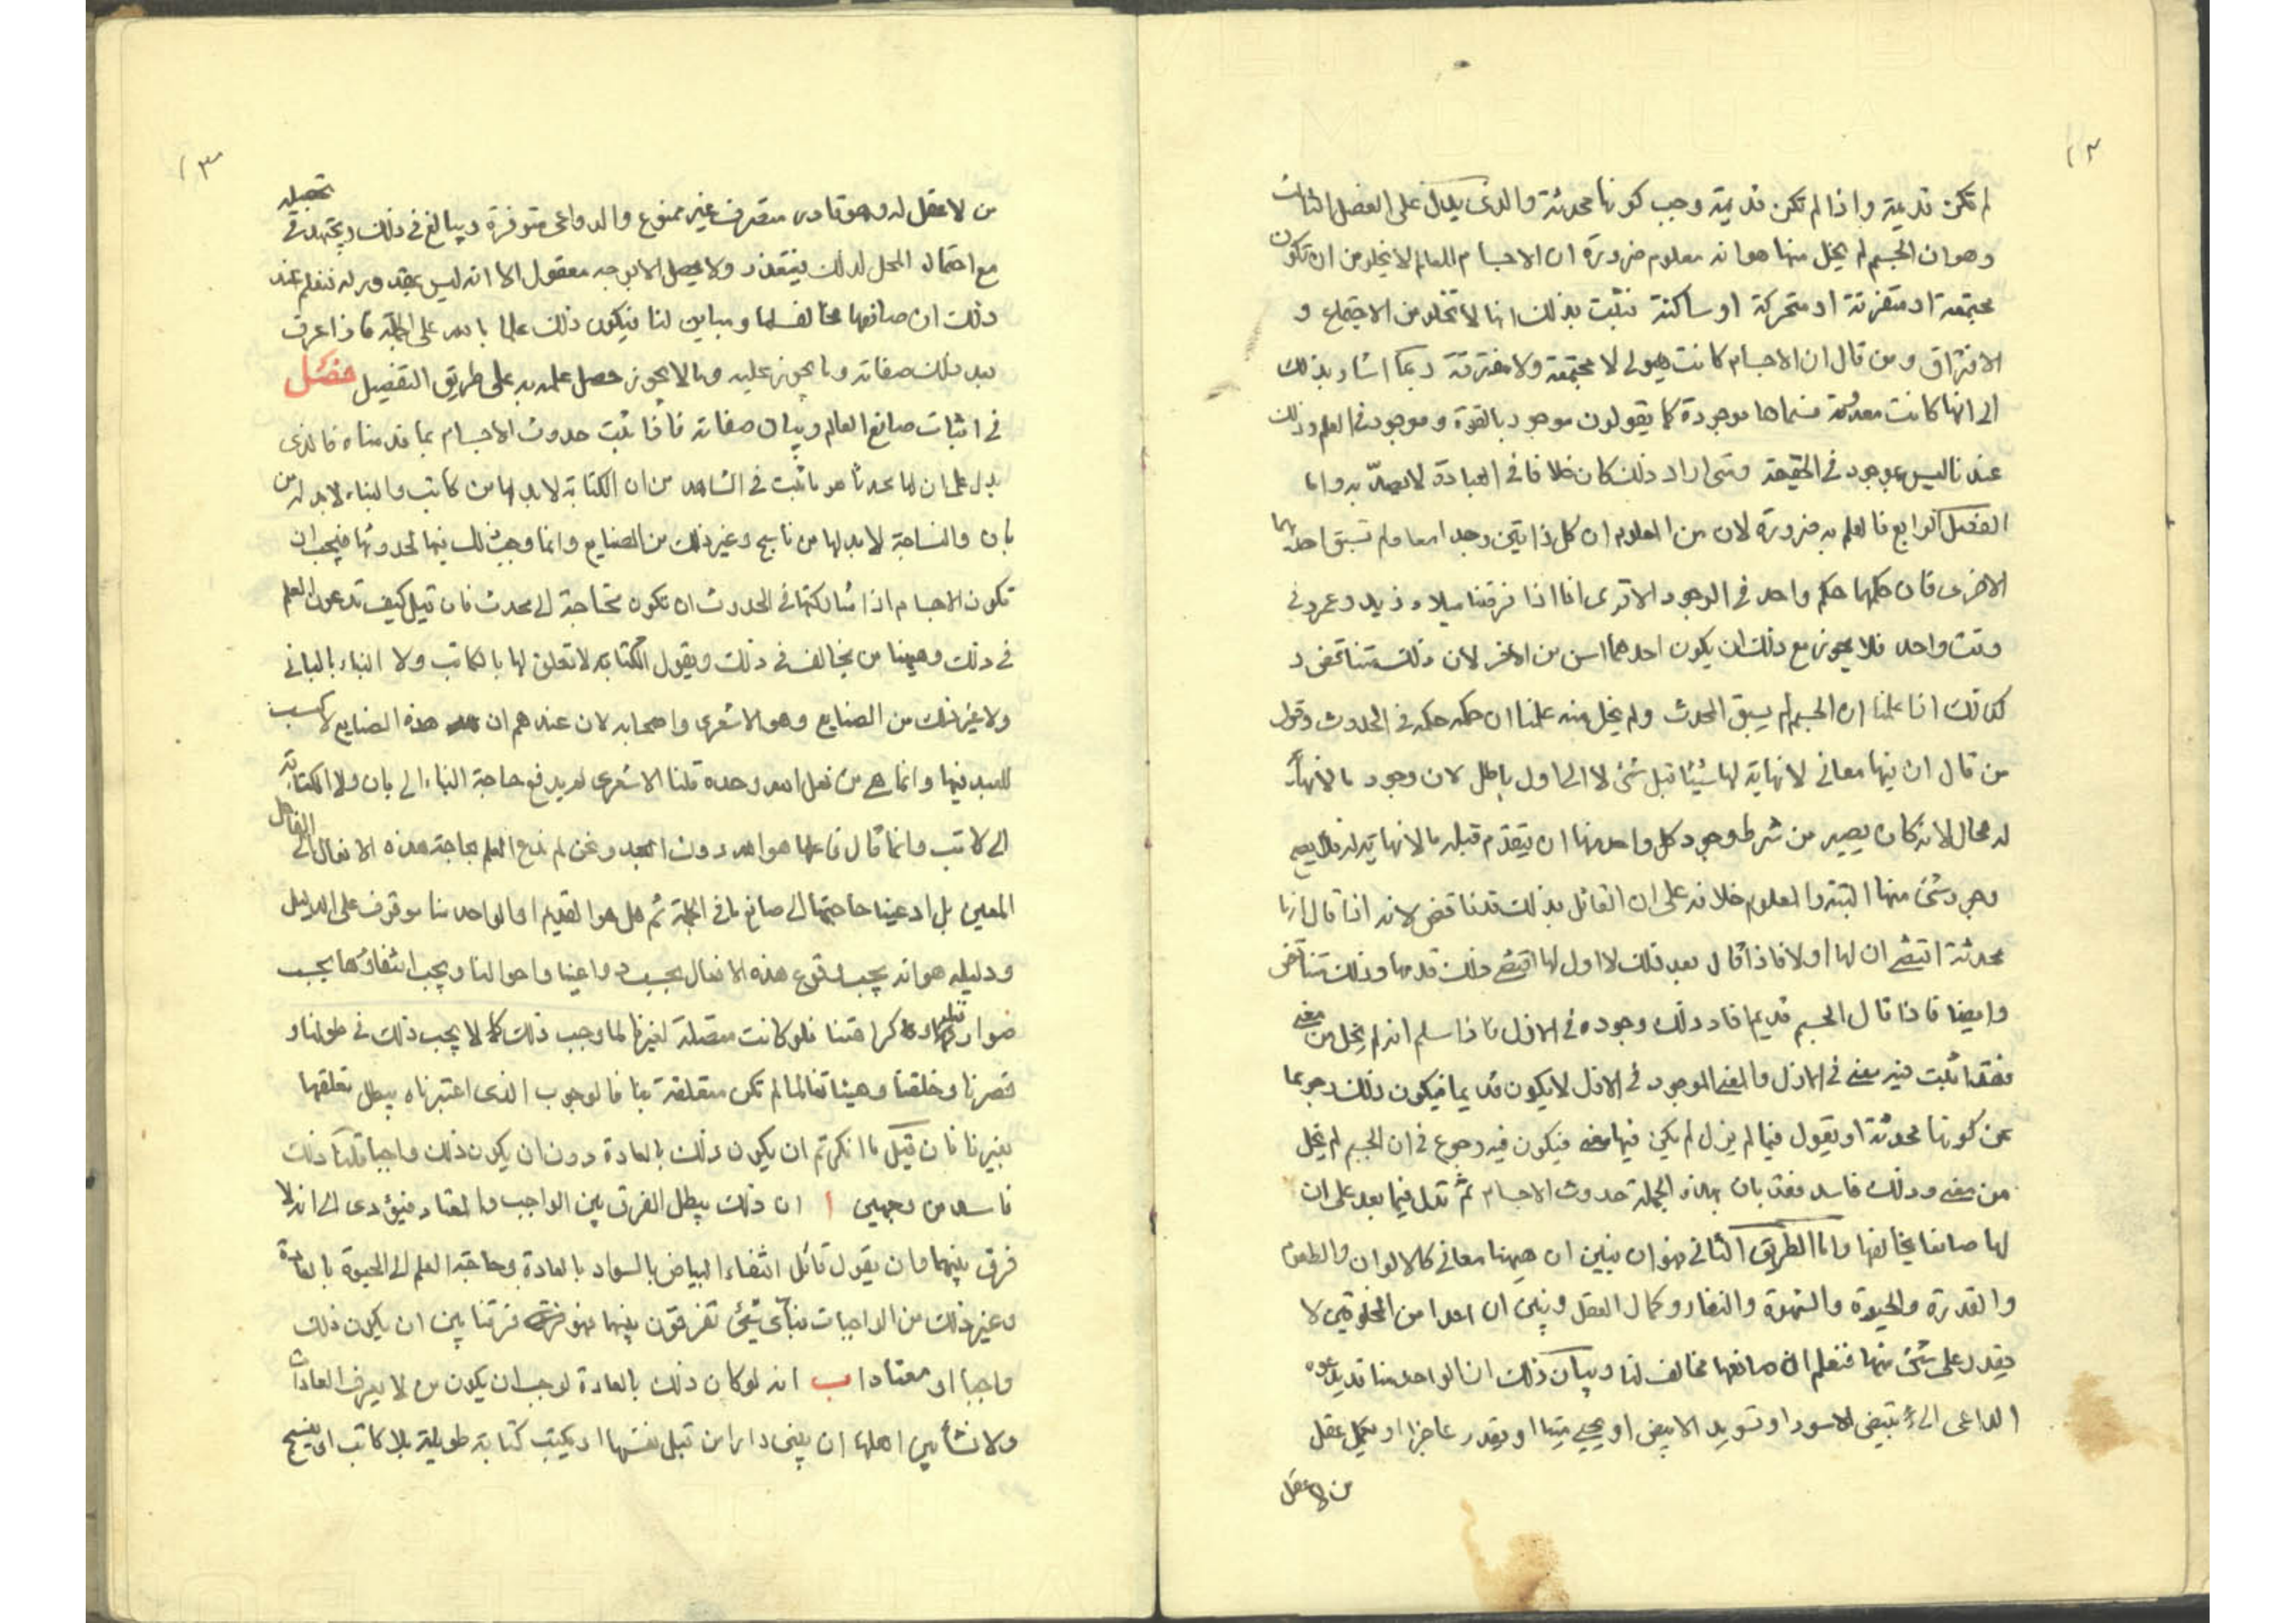 لم تكن قديمة واذا لم تكن قديمة وجب كونها محدثة والذى يدل على الفصل الثالث
وهو ان الجسم لم يخل منها هو انه معلوم ضرورة ان الاجسام العالم لا يخلو من ان تكون
مجتمعة او متفرقة او متحركة او ساكنة فثبت بذلك انها لا تخلو من الاجتماع و
الافتراق ومن قال ان الاجسام كانت هيولى لا مجتمعة ولا مفترقة ربما اشار بذلك
الى انها كانت معدومة فسماها موجودة كما يقولون موجود بالقوة وموجود فى العلم وذلك
عندنا ليس بموجود فى الحقيقة ومتى اراد ذلك كان خلافا فى العبادة لا يعتدّ به واما
الفصل الرابع فالعلم به ضرورة لان من المعلوم ان كل ذاتين وجدا معا ولم تسبق احديهما
الاخرى فان حكمها حكم واحد فى الوجود الا ترى انا اذا فرقنا ميلاد زيد وعمرو فى
وقت واحد فلا يجوز مع ذلك ان يكون احدهما اسن من الاخر لان ذلك متناقض و
كذلك اذا علمنا ان الجسم لم يسبق المحدث ولم يخل منه علمنا ان حكمه حكمه فى الحدوث وقول
من قال ان فيها معانى لا نهاية لها شيئا قبل شئ لا الى اول باطل لان وجود ما لا نهاية
له محال لانه كان يصير من شرط وجود كل واحد منها ان يتقدم قبله ما لا نهاية له فلا يصح
وجود شئ منها البتة والمعلوم خلافه على ان القائل بذلك قد ناقض لانه اذا قال انها
محدثة اقتضى ان لها اولا فاذا قال بعد ذلك لا اول لها اقتضى ذلك قدمها وذلك متناقض
وايضا فاذا قال الجسم قديم افاد ذلك وجوده فى الازل فاذا سلم انه لم يخل من معنى
فقد اثبت فيه معنى فى الازل والمعنى الموجود فى الازل لا يكون قديما فيكون ذلك رجوعا
عن كونها محدثة او يقول فيما لم يزل لم يكن فيها معنى فيكون فيه رجوع فى ان الجسم لم يخل
من معنى وذلك فاسد فقد بان بهذه الجملة حدوث الاجسام ثم تدل فيما بعد على ان
لها صانعا يخالفها واما الطريق الثانى فهو ان نبين ان هيهنا معانى كالالوان والطعوم
والقدرة والحيوة والشهوة والنفار وكمال العقل ونبين ان احدا من المخلوقين لا
يقدر على شئ منها فنعلم ان صانعها مخالف لنا وبيان ذلك ان الواحد منا قد يدعوه
الداعى الى تبيض الاسود او تسويد الابيض او يحيى ميتا او يقدر عاجزا او يكمل عقل
من لا عقل
من لا عقل له وهو قادر متصرف غير ممنوع والدواعى متوفرة ويبالغ فى ذلك ويجتهد فى تحصيله
مع احتمال المحل لذلك فيتعذر ولا يحصل لا لوجه معقول الا انه ليس بمقدور له فنعلم عند
ذلك ان صانعها مخالف لها ومباين لنا فيكون ذلك علما بالله على الجملة فاذا عرف
بعد ذلك صفاته وما يجوز عليه وما لا يجوز حصل علمه به على طريق التفصيل فصل
فى اثبات صانع العالم وبيان صفاته فاذا ثبت حدوث الاجسام بما قدمناه فالذى
يدل على ان لها محدثا هو ما ثبت فى الشاهد من ان الكتابة لا بد لها من كاتب والبناء لا بد له من
بان والنساجة لا بد لها من ناسج وغير ذلك من الصنايع وانما وجب ذلك فيها لحدوثها فيجب ان
تكون الاجسام اذا شاركتها فى الحدوث ان تكون محتاجة الى محدث فان قيل كيف تدعون العلم
فى ذلك وهيهنا من يخالف فى ذلك ويقول الكتابة لا تعلق لها بالكاتب ولا البناء بالبانى
ولا غير ذلك من الصنايع وهو الاشعرى واصحابه لان عندهم ان هذه الصنايع لا كسب
للعبد فيها وانما هى من فعل الله وحده قلنا الاشعرى لم يدفع حاجة البناء الى بان ولا الكتابة
الى كاتب وانما قال فاعلها هو الله دون العبد ونحن لم ندع العلم بحاجة هذه الافعال الى الفاعل
المعين بل ادعينا حاجتها الى صانع ما فى الجملة ثم هل هو القديم او الواحد منا موقوف على الدليل
ودليله هو انه يجب وقوع هذه الافعال بحسب دواعينا واحوالنا ويجب انتفاؤها بحسب
صوارفنا وكراهتنا فلو كانت متصلة لغيرنا لما وجب ذلك كما لا يجب ذلك فى طولنا و
قصرنا وخلقنا وهيئاتنا لما لم تكن متعلقة بنا فالوجوب الذى اعتبرناه يبطل تعلقها
بغيرنا فان قيل ما انكرتم ان يكون ذلك بالعادة دون ان يكون ذلك واجبا قلنا ذلك
فاسد من وجهين ا ان ذلك يبطل الفرق بين الواجب والمعتاد فيؤدى الى انه لا
فرق بينهما وان يقول قائل انتفاء البياض بالسواد بالعادة وحاجة العلم الى الحيوة بالعادة
وغير ذلك من الواجبات فباى شئ تفرقون بينهما فهو فرقنا بين ان يكون ذلك
واجبا او معتادا ب انه لو كان ذلك بالعادة لوجب ان يكون من لا يعرف العادات
ولا نشأ بين اهلها ان يبنى دارا من قبل نفسها او يكتب كتابة طويلة بلا كاتب او ينسج